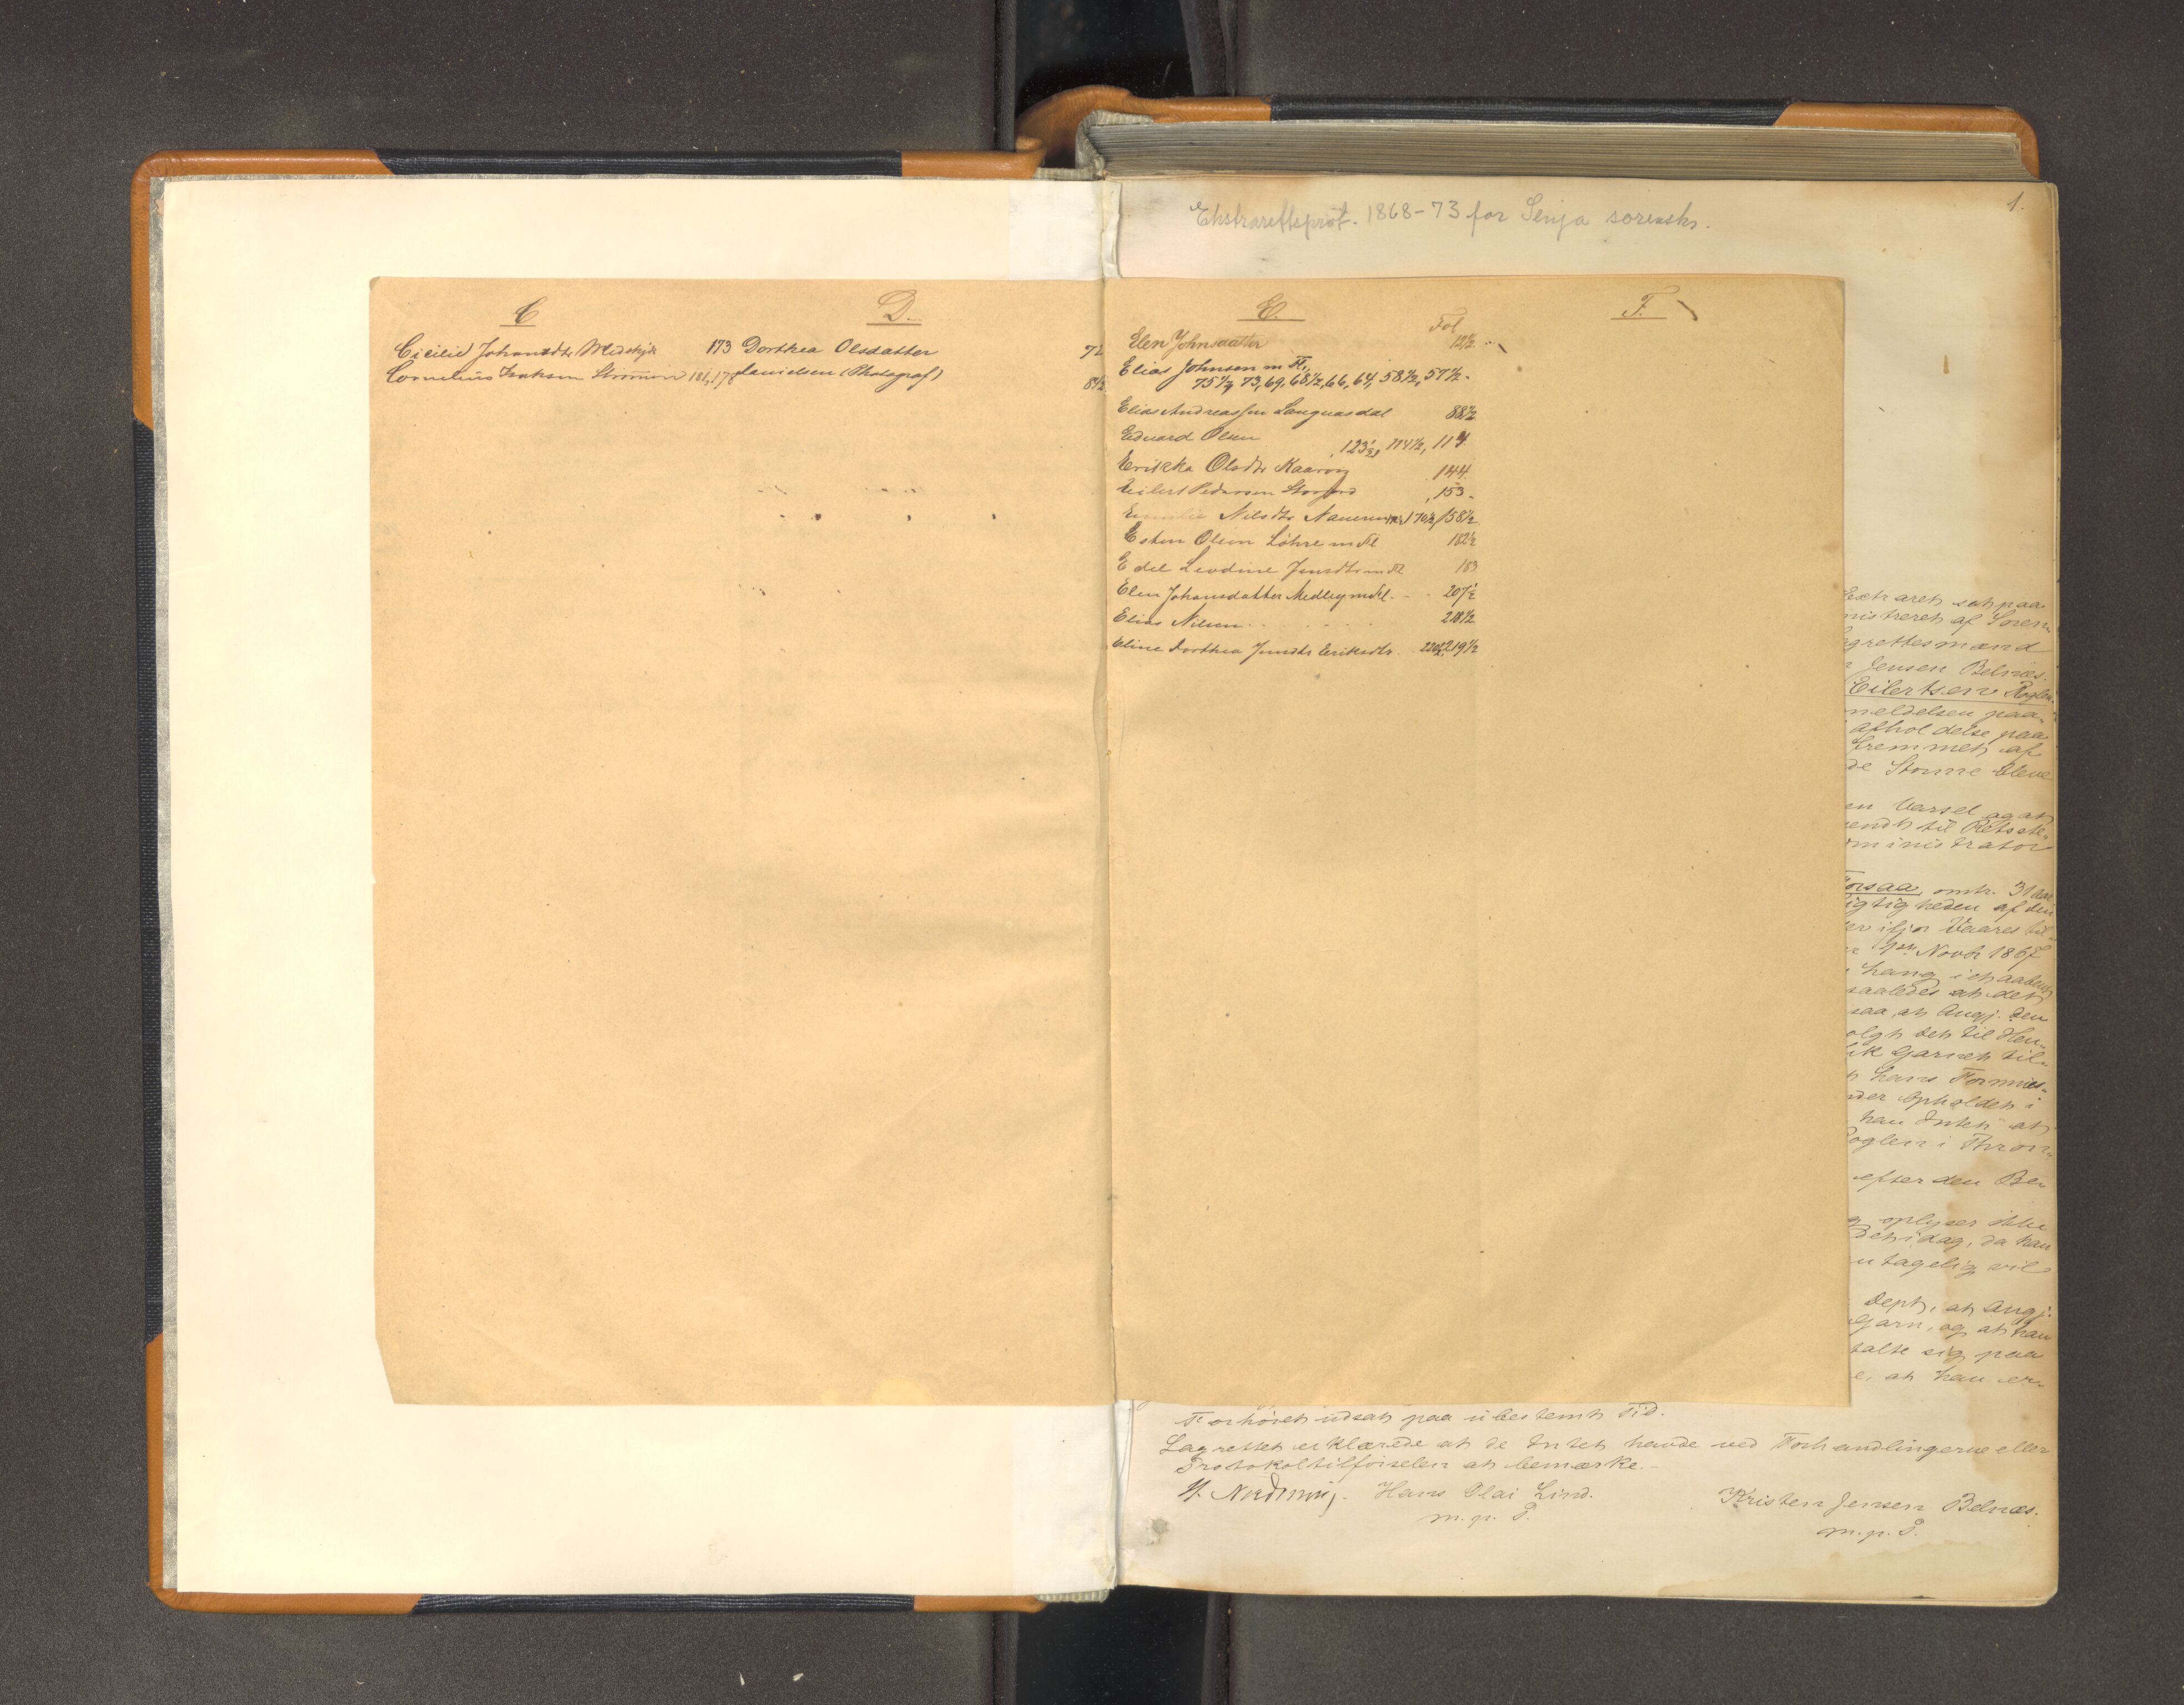 Ekstraretsprot. 1868-73 for Senja sorensk.
1.
C
Cicilie Johansdtr Medskjær 173
Cornelius Isaksen Strømmen 181, 17
D.
Dorthea Olsdatter 72
Danielsen (Photograf) 8½
E.
Fol
Elen Johnsdatter 12½
Elias Johnsen m Fl.
75½, 73, 69, 68½, 66, 64, 58½, 57½.
Elias Andreassen Langnasdal 88½
Eduard Olsen 123½, 114½, 114
Erikka Olsdtr Kaarvig 144.
Eilert Pedersen Storfjord 153.
Emilie Nilsdtr 170½, 158½
Esten Olsen Löhre m Fl 182½
Edel Leodine Jensdtr m Fl 183
Elen Johansdatter Medby m Fl. 207½
Elias Nilsen 218½
Eline Dorthea Jensdtr Eriksdtr. 220½, 219½
F.
Extraret sat paa
nistreret af Soren
agrettesmænd
Jensen Belnæs.
Eilertsen Roglen
meldelsen paa
afholdelse paa
fremmet af
de Storme bleve
en Varsel og at
endt til Retsste-
ministrator
Forsaa, omtr. 31 Aar
igtigheden af den
er ifjor Vaares til
Novbr 1867
hang i et aabent
saaledes at det
saa, at Angj. den
olgt det til Hen-
ik Garnet til
hans Formues-
nder Opholdet i
han Intet at
Roglen i Thron
efter den Be
oplyser ikke
Det idag, da han
ntagelig vil
Dept, at Angj.
Garn, og at han
talte sig paa
e, at han er-
Forhöret udsat paa ubestemt Tid.
Lagrettet erklærede at de Intet havde ved Forhandlingerne eller
Protokoltilføiselen at bemærke.-
Hans Olai Lind.
m. p. P.
Kristen Jensen Belnæs.
m. p. P.